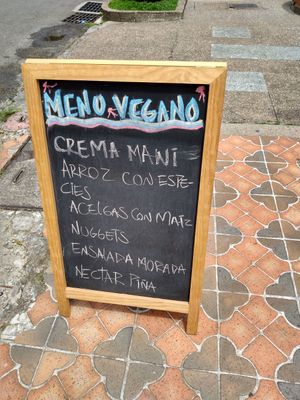 MENÚ VEGANO
CREMA MANÍ
ARROZ CON ESPE-
CIES
ACELGAS CON MAIZ
NUGGETS
ENSALADA MORADA
NECTAR PIÑA